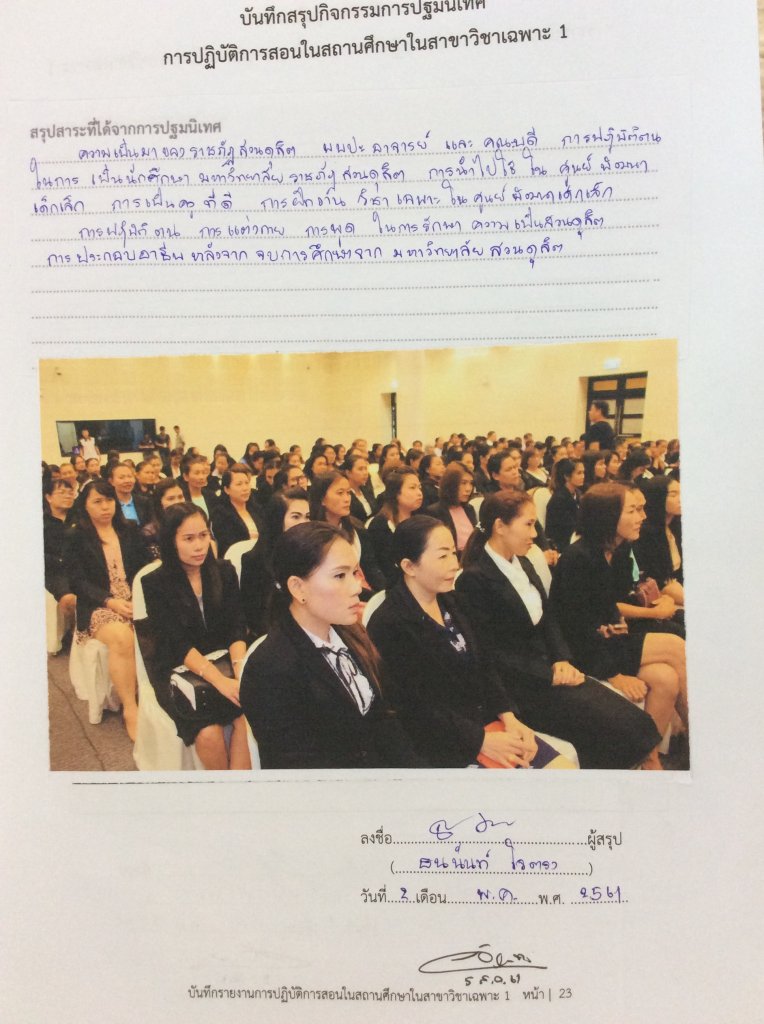 บันทึกสรุปกิจกรรมการปฐมนิเทศ
การปฏิบัติการสอนในสถานศึกษาในสาขาวิชาเฉพาะ 1
สรุปสาระที่ได้จากการปฐมนิเทศ
ความเป็นมาของราชภัฏสวนดุสิต พบปะ อาจารย์ และ คณบดี การปฏิบัติตน
ในการ เป็นนักศึกษา มหาวิทยาลัยราชภัฏสวนดุสิต การนำไปใช้ ใน ศูนย์ พัฒนา
เด็กเล็ก การเป็นครู ที่ดี การฝึกงาน วิชา เฉพาะ ใน ศูนย์ พัฒนาเด็กเล็ก
การปฏิบัติตน การแต่งกาย การพูด ในการรักษา ความเป็นสวนดุสิต
การ ประกอบอาชีพ หลังจาก จบการศึกษาจาก มหาวิทยาลัย สวนดุสิต
ลงชื่อ.............ผู้สรุป
(ธนนันท์)
วันที่ 2 เดือน พ.ค. พ.ศ. 2561
บันทึกรายงานการปฏิบัติการสอนในสถานศึกษาในสาขาวิชาเฉพาะ 1 หน้า | 23